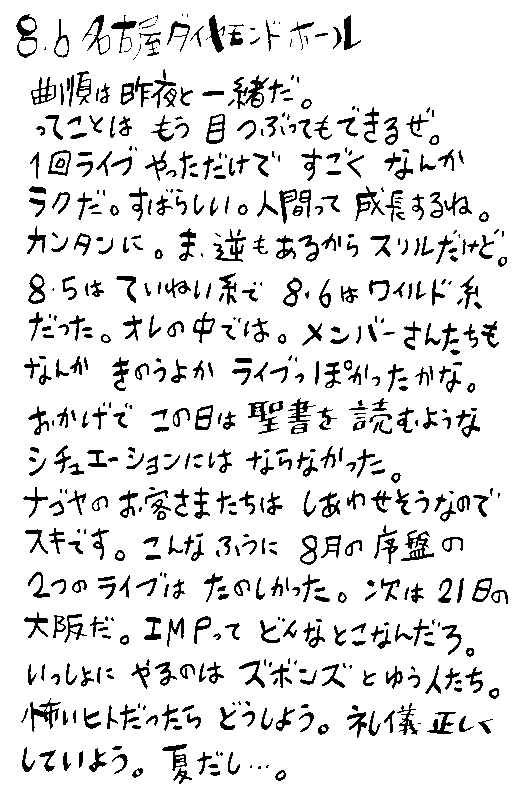 8.6 名古屋ダイヤモンドホール
曲順は昨夜と一緒だ。
ってことは もう目つぶってもできるぜ。
1回ライブやっただけで すごく なんか
ラクだ。すばらしい。人間って成長するね。
カンタンに。ま、逆もあるからスリルだけど。
8.5は ていねい系で 8.6はワイルド系
だった。オレの中では。メンバーさんたちも
なんか きのうよか ライブっぽかったかな。
おかげで この日は聖書を読むような
シチュエーションには ならなかった。
ナゴヤのお客さまたちは しあわせそうなので
スキです。こんなふうに 8月の序盤の
2つのライブは たのしかった。次は21日の
大阪だ。IMPって どんなとこなんだろ。
いっしょに やるのは ズボンズとゆう人たち。
怖いヒトだったら どうしよう。礼儀正しく
していよう。夏だし…。